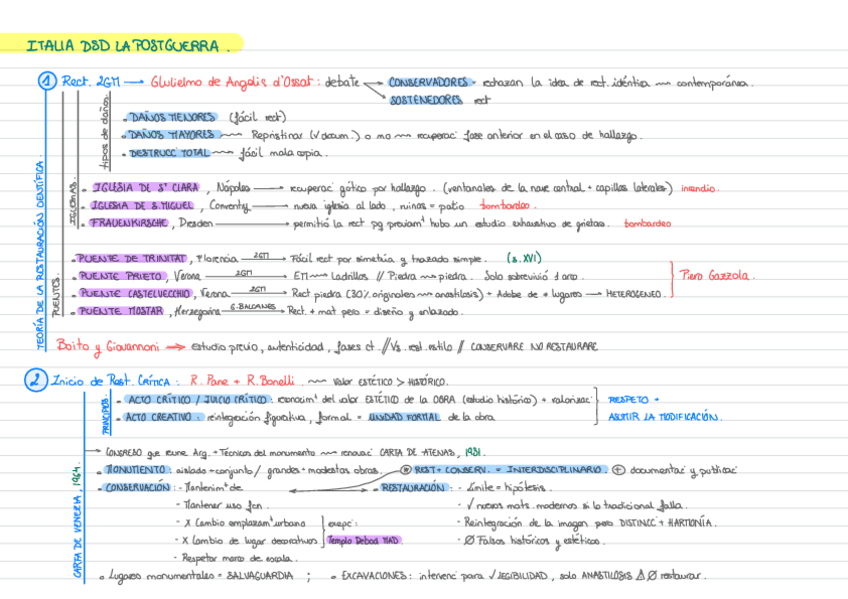 ITALIA DSD LA POSTGUERRA.
1 Rect. 2GM → Giulielmo de Angelis d'Ossat: debate CONSERVADORES rechazan la idea de rect. idéntica contemporánea.
SOSTENEDORES rect
TEORÍA DE LA RESTAURACIÓN CIENTÍFICA.
tipos de daños
- DAÑOS MENORES (fácil rect)
- DAÑOS MAYORES Repristinar (√ docum.) o no recuperac fase anterior en el caso de hallazgo.
- DESTRUCC TOTAL fácil mala copia.
IGLESIAS.
- IGLESIA DE Sª CLARA, Nápoles → recuperac gótico por hallazgo. (ventanales de la nave central + capillas laterales) incendio.
- IGLESIA DE S. MIGUEL, Conventry → nueva iglesia al lado, ruinas = patio bombardeo.
- FRAUENKIRSCHE, Dresden → permitió la rect pq previam hubo un estudio exhaustivo de grietas. bombardeo
PUENTES.
- PUENTE DE TRINITAT, Florencia 2GM → Fácil rect por simetría y trazado simple. (s. XVI)
- PUENTE PRIETO, Verona 2GM → EM Ladrillos // Piedra piedra. Solo sobrevivió 1 arco.
- PUENTE CASTELVECCHIO, Verona 2GM → Rect piedra (30% originales anastilosis) + Adobe de ≠ lugares → HETEROGENEO.
Piero Gazzola.
- PUENTE MOSTAR, Herzegoina G. BALCANES → Rect. ≠ mat pero = diseño y enlazado.
Boito y Giovannoni → estudio previo, autenticidad, fases ct. // Vs. rest. estilo // CONSERVARE NO RESTAURARE
2 Inicio de Rest. CRÍTICA: R. Pane + R. Bonelli. Valor ESTÉTICO > HISTÓRICO.
PRINCIPIOS.
- ACTO CRÍTICO / JUICIO CRÍTICO: reconocim del valor ESTÉTICO de la OBRA (estudio histórico) + valorizac
- ACTO CREATIVO: reintegración figurativa, formal = UNIDAD FORMAL de la obra
RESPETO +
ASUMIR LA MODIFICACIÓN.
CARTA DE VENECIA, 1964.
→ CONGRESO que reune Arq. + Técnicos del monumento renovac CARTA DE ATENAS, 1931.
- MONUMENTO: aislado + conjunto / grandes + modestas obras. REST + CONSERV. = INTERDISCIPLINARIO. + documentac y publicac
- CONSERVACIÓN: - Mantenim de
- Mantener uso fcn.
- X Cambio emplazam urbano
- X Cambio de lugar decorativos
- Respetar marco de escala.
excepc:
Templo Debod MAD
- RESTAURACIÓN: - Límite = hipótesis.
- √ nuevos mats. modernos si lo tradicional falla.
- Reintegración de la imagen pero DISTINCC + HARMONÍA.
- Ø Falsos históricos y estéticos.
- Lugares monumentales = SALVAGUARDIA ; - EXCAVACIONES: intervenc para √ LEGIBILIDAD, solo ANASTILOSIS Δ Ø restaurar.